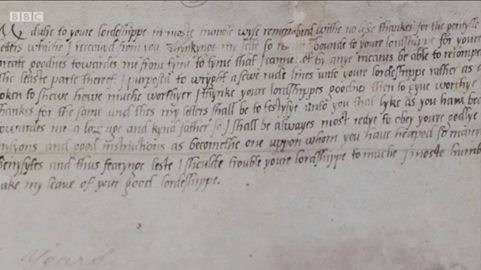 BBC
My dutie to youre lordeshippe in moste humble wyse remembred withe no lesse thankes for the gentylle
letters whiche I receavid from you thynkynge my selfe so bounde to youre lordshippe for youre
greate goodnes towardes me from tyme to tyme that I cannot by anye meanes be able to recompence
the least parte thereof I purposid to wryght a fewe rude lines unto youre lordeshippe rather as a
token to shewe howe muche worthyer I thynke youre lordshippes goodnes then to gyve worthye
thankes for the same and thes my letters shall be to testyfye unto you that lyke as you have beene
towardes me a lovynge and kynd father so I shall be alwayes most redye to obey youre godlye
monycions and good instructions as becomethe one uppon whom you have heaped so many
benyfytes and thus fearynge leste I shoulde trouble youre lordshippe to muche I moste humblye
take my leave of your good lordeshippe.